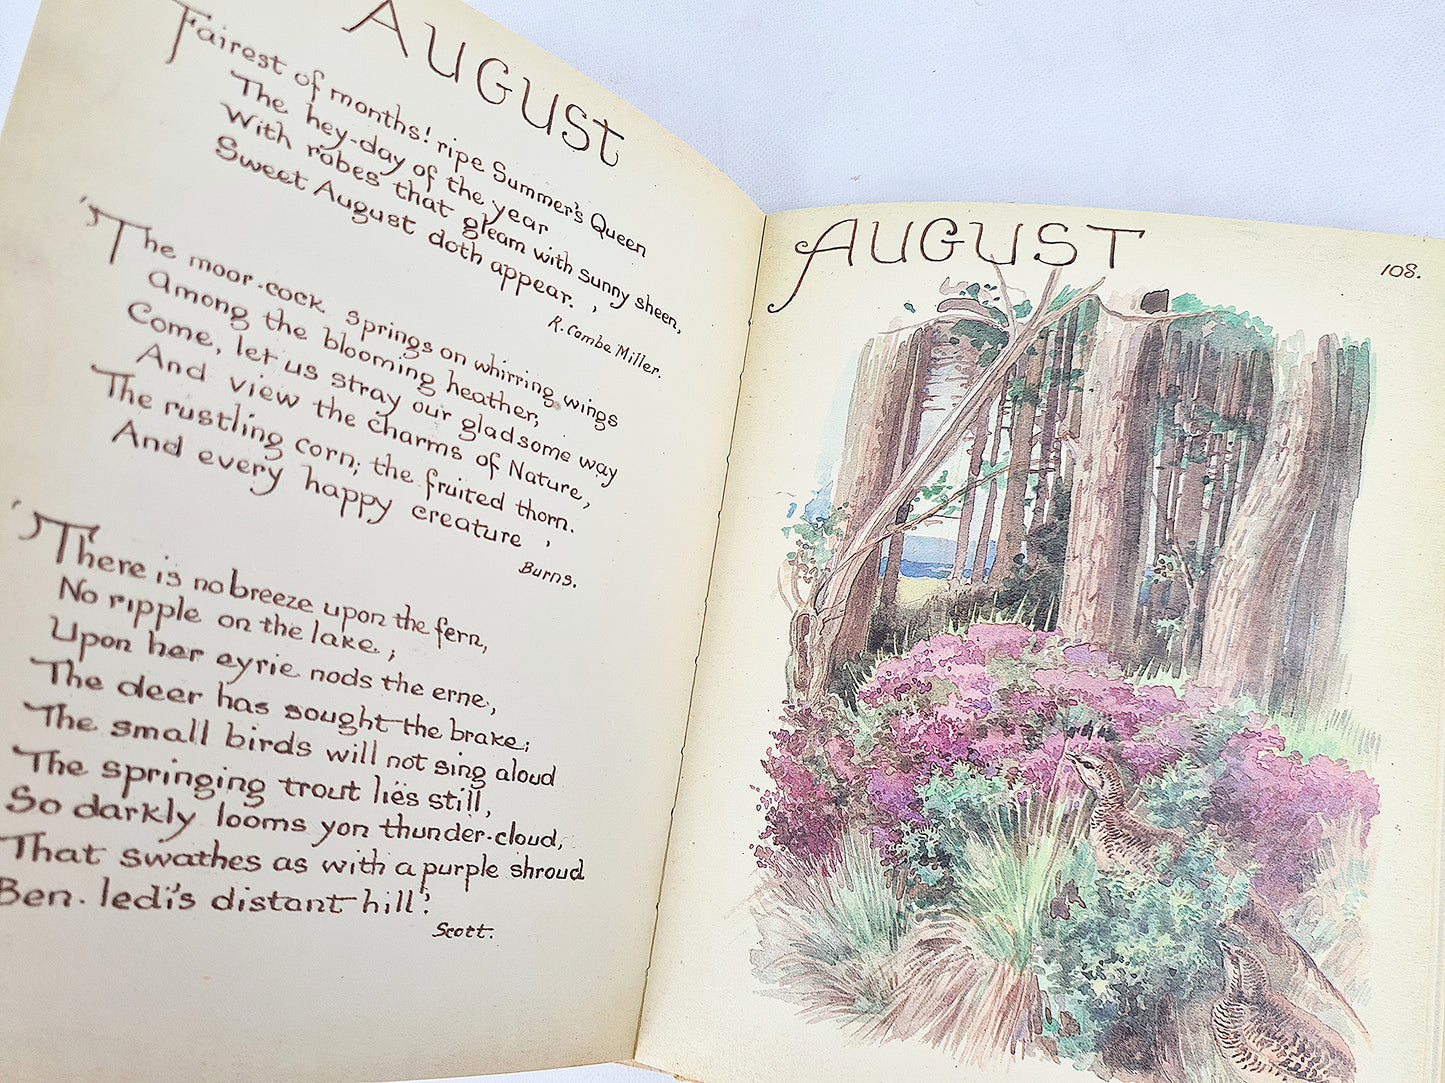 AUGUST
Fairest of months! ripe Summer's Queen
The hey-day of the year
With robes that gleam with sunny sheen,
Sweet August doth appear.'
R. Combe Miller.
'The moor-cock springs on whirring wings
Among the blooming heather,
Come, let us stray our gladsome way
And view the charms of Nature,
The rustling corn; the fruited thorn.
And every happy creature'
Burns.
'There is no breeze upon the fern,
No ripple on the lake;
Upon her eyrie nods the erne,
The deer has sought the brake;
The small birds will not sing aloud
The springing trout lies still,
So darkly looms yon thunder-cloud,
That swathes as with a purple shroud
Ben-ledi's distant hill'.
Scott.
AUGUST
108.